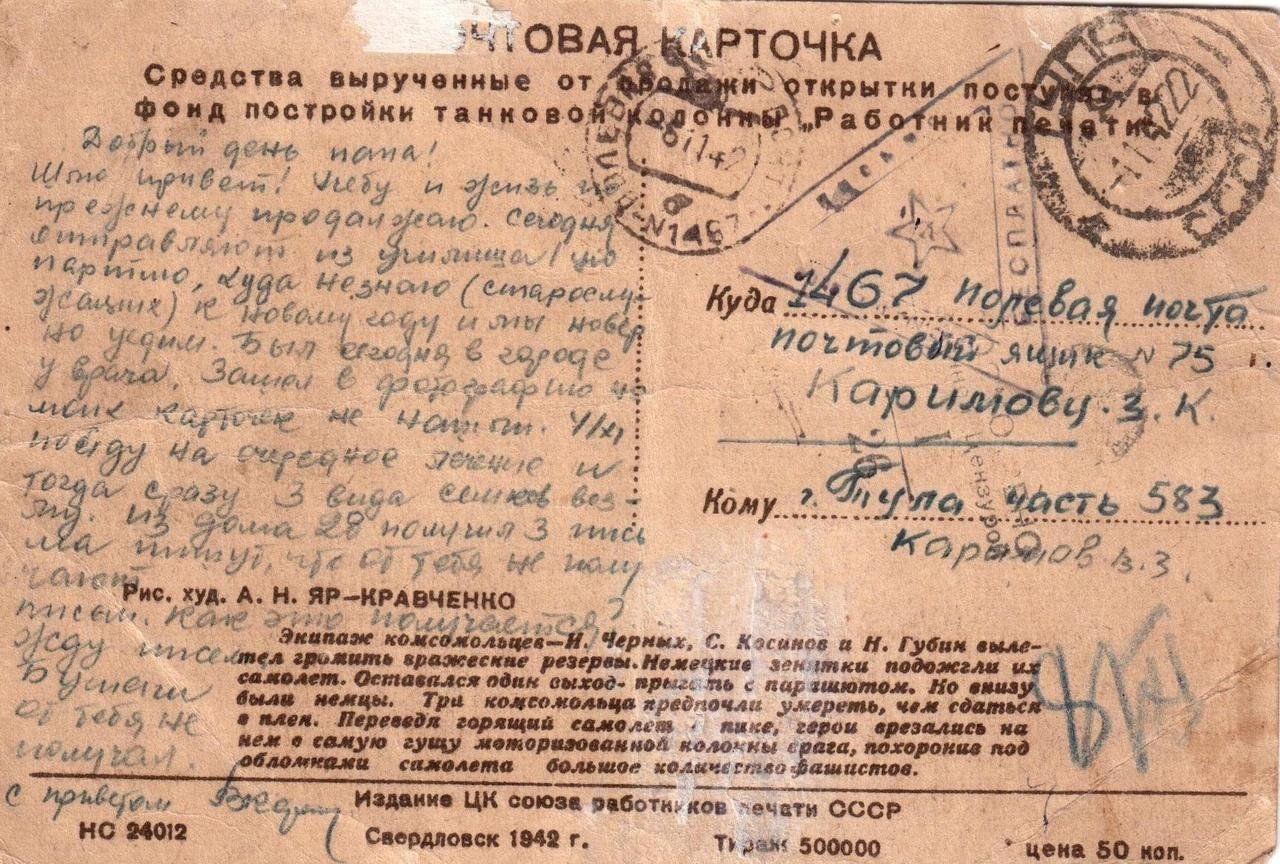 ПОЧТОВАЯ КАРТОЧКА
Средства вырученные от продажи открытки поступят в
фонд постройки танковой колонны „Работник печати“
Добрый день папа!
Шлю привет! Учебу и жизнь по
прежнему продалжаю. Сегодня
отправляют из училища
партию, куда незнаю (старослу-
жащих) к новому году и мы навер
но уедим. Был сегодня в городе
у врача. Зашел в фотографию но
моих карточек не нашли.
поеду на очередное лечение и
тогда сразу 3 вида воз-
му. Из дома 28 получил 3 пись
ма пишут, что от тебя не полу
чают
писем. Как это получается?
Жду писем
Бумаги
от тебя не
получал.
с приветом
Куда 1467 полевая почта
почтовый ящик N 75
Каримову З. К.
Кому г. Тула часть 583
Каримов В. З.
БЕСПЛАТНО
N1467
Цензурой
Рис. худ. А. Н. ЯР–КРАВЧЕНКО
Экипаж комсомольцев—И. Черных, С. Косинов и Н. Губин выле-
тел громить вражеские резервы. Немецкие зенитки подожгли их
самолет. Оставался один выход- прыгать с парашютом. Но внизу
были немцы. Три комсомольца предпочли умереть, чем сдаться
в плен. Переведя горящий самолет в пике, герои врезались на
нем в самую гущу моторизованной колонны врага, похоронив под
обломками самолета большое количество фашистов.
Издание ЦК союза работников печати СССР
НС 24012 Свердловск 1942 г. Тираж 500000 цена 50 коп.